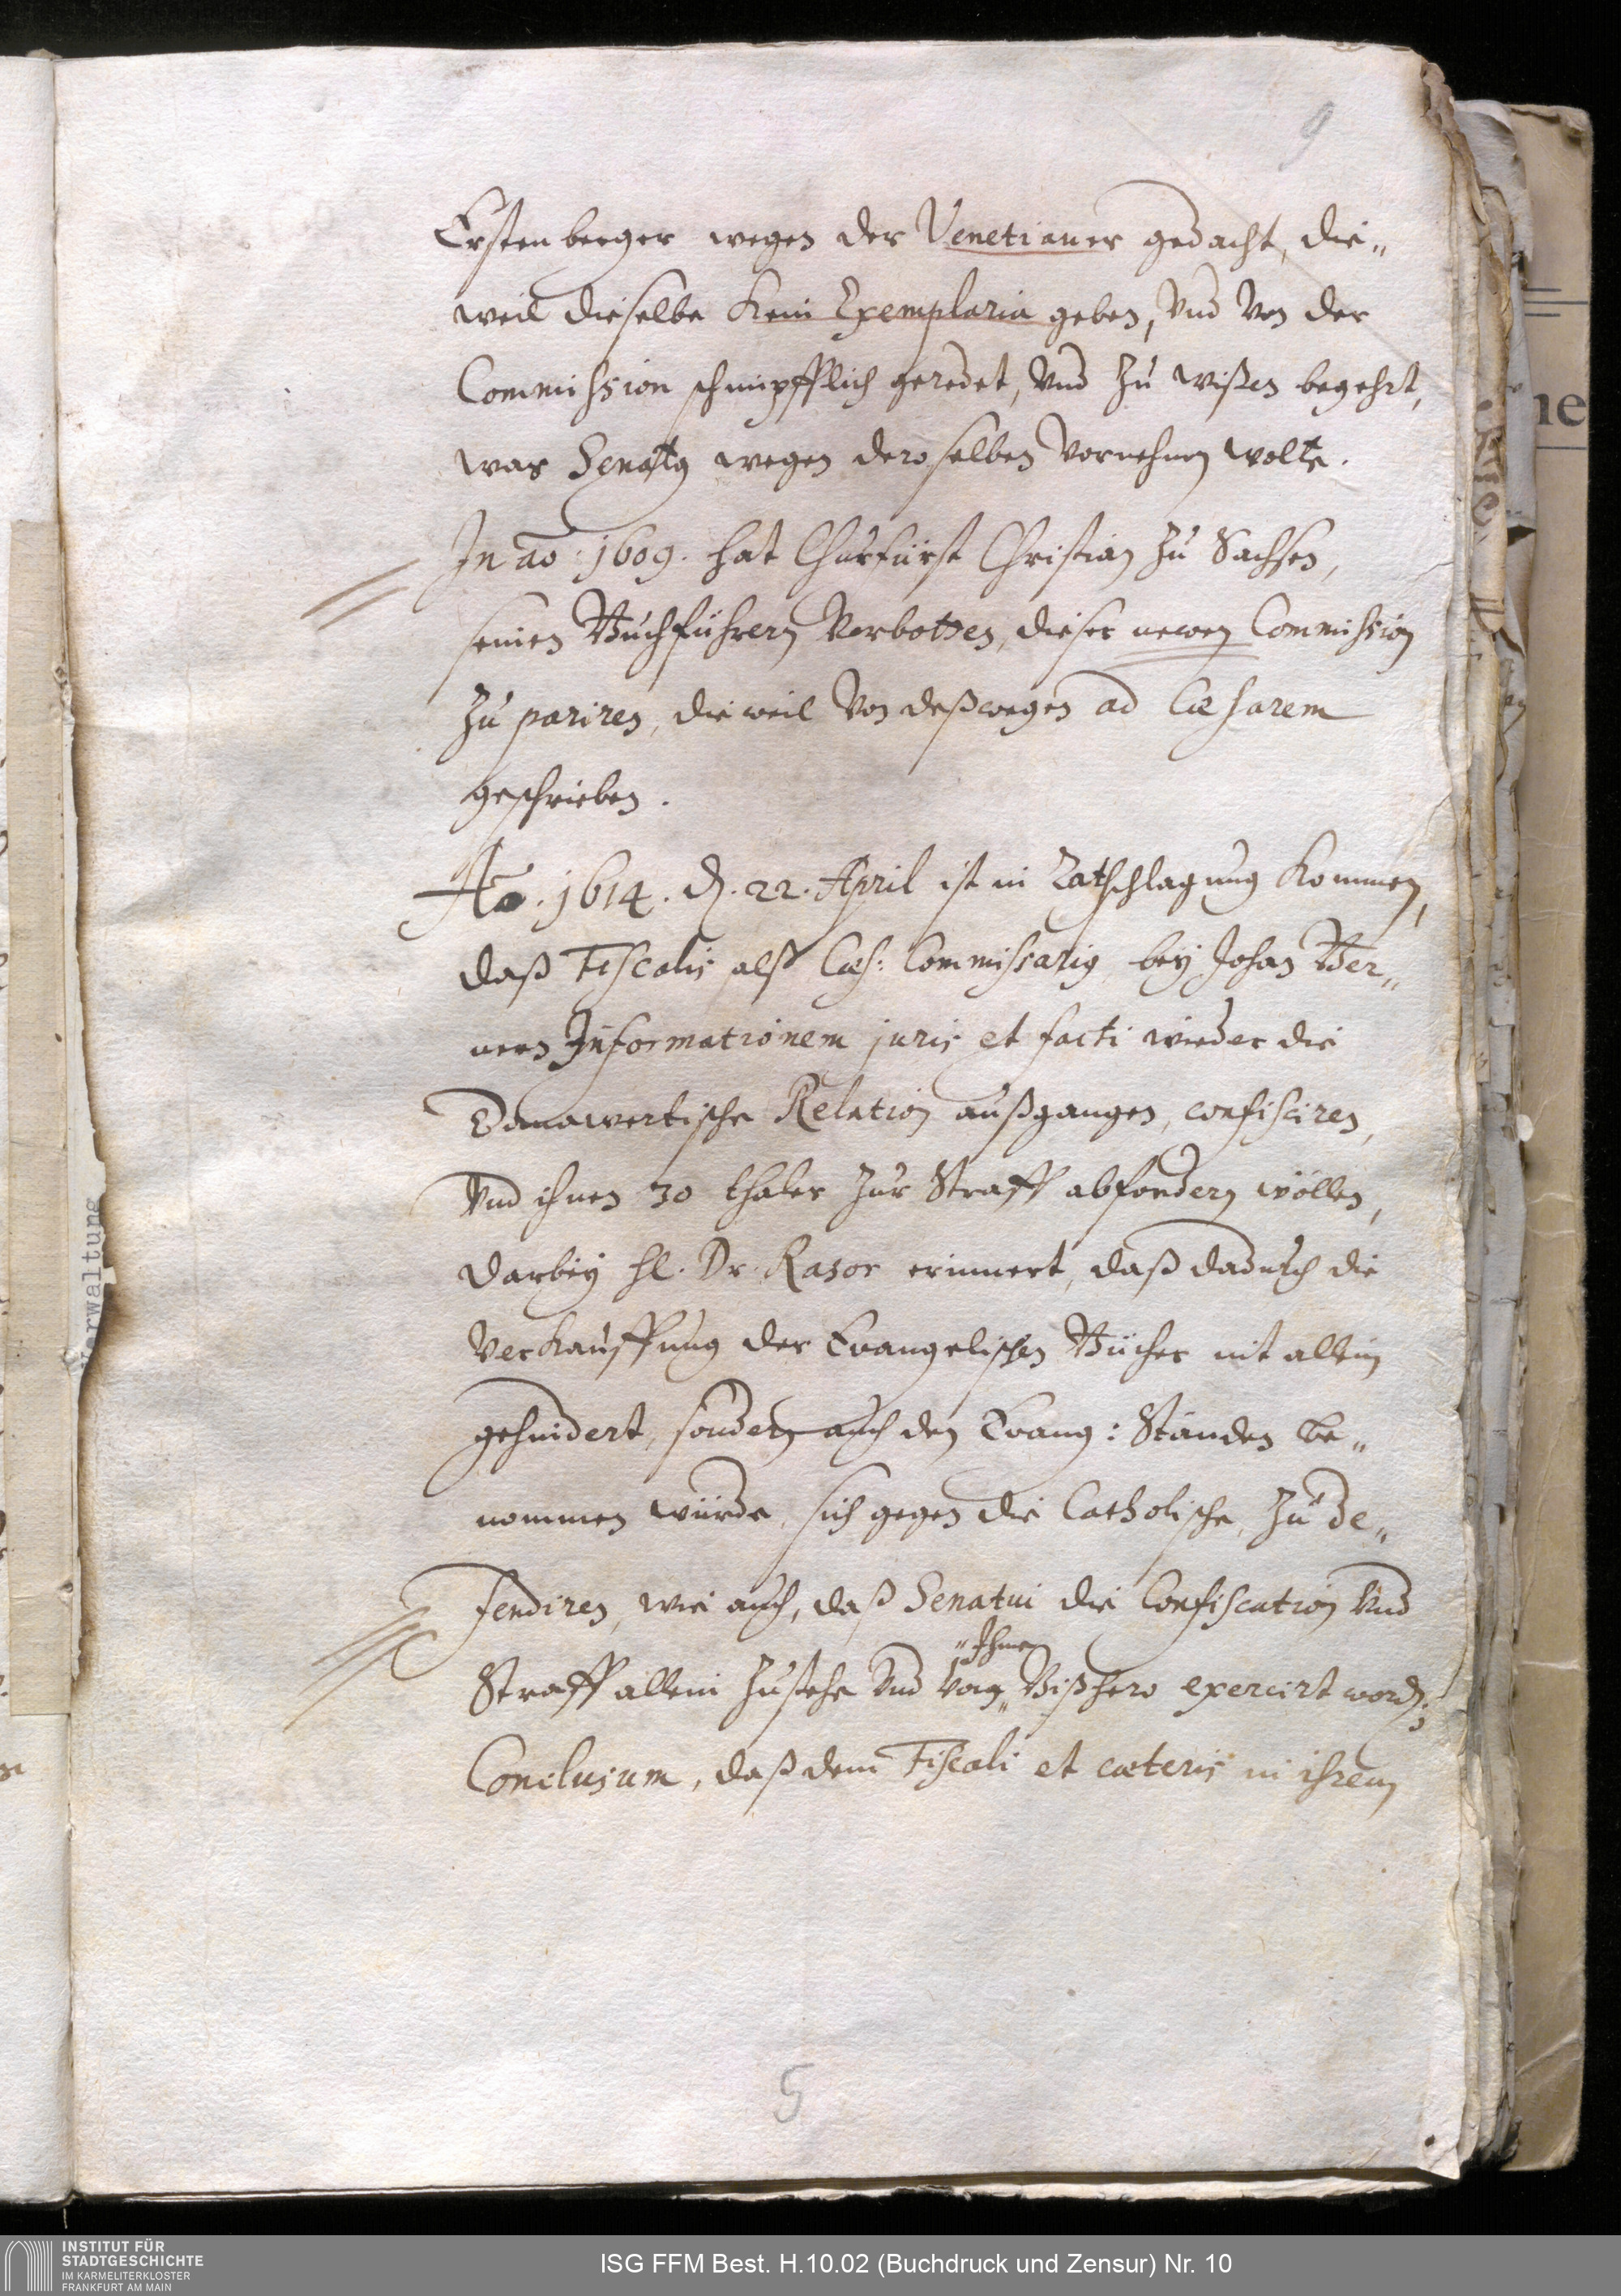 9
Erstenberger wegen der Venetianer gedacht, die„
weil dieselbe Kein Exemplaria geben, Vnd Von der
Commission schimpfflich geredet, Vnd Zu wißen begehrt,
was Senatus wegen deroselben Vornehmen wolte.
In ao: 1609. hat Churfürst Christian Zu Sachsen,
seinen Buchführern Verbotten, dieser newen Commission
Zu pariren, die weil Von deßwegen ad Cæsarem
geschrieben.
Ao. 1614. d. 22. April ist in Rathschlagung Kommen,
daß Fiscalis alß Cæs: Commissarius bey Johan Ber„
nern Informationem juris et facti wieder die
Donawertische Relation außgangen, confisciren,
Vnd ihnen 30 thaler Zur Straff abfordern wöllen,
darbey hl. Dr. Rasor erinnert, daß dadurch die
Verkauffung der Evangelischen Bücher nit allein
gehindert, sondern auch den Evang: Ständen be„
nommen würde, sich gegen die Catholische, Zu de„
fendiren, wie auch, daß Senatui die Confiscation Vnd
„Ihme
Straff allein Zustehe Vnd Von„ Bißhero exercirt word.;
Conclusum, daß dem Fiscali et cæteris in ihrem
5
Verwaltung
ne
INSTITUT FÜR
STADTGESCHICHTE
IM KARMELITERKLOSTER
FRANKFURT AM MAIN
ISG FFM Best. H.10.02 (Buchdruck und Zensur) Nr. 10